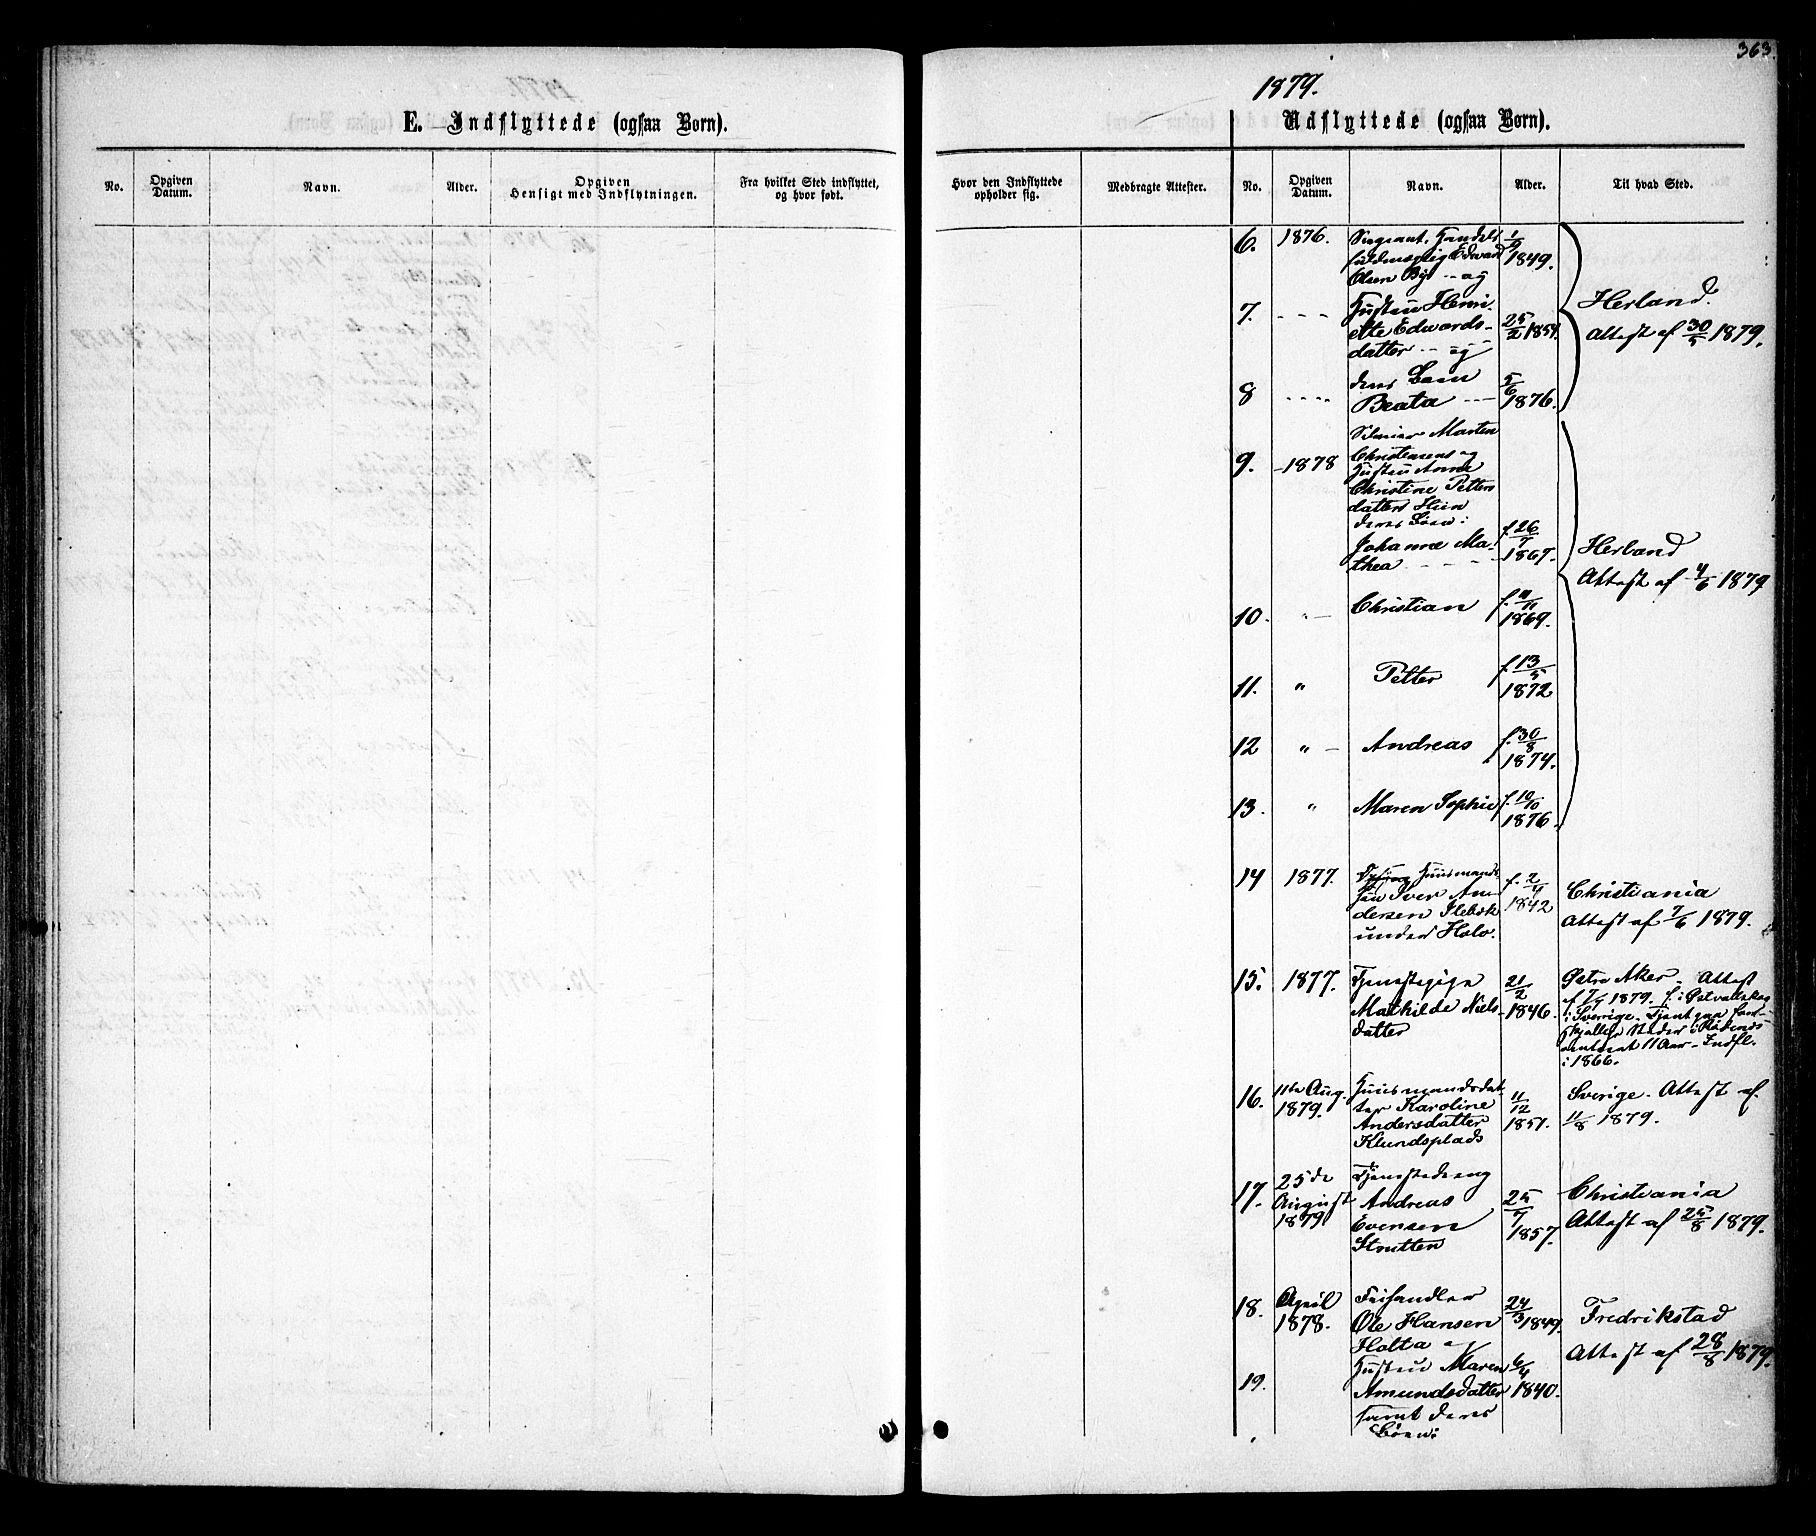 363.
1879.
E. Indflyttede (ogsaa Børn).
Udflyttede (ogsaa Børn).
No.
Opgiven Datum.
Navn.
Alder.
Opgiven Hensigt med Indflytningen.
Fra hvilket Sted indflyttet, og hvor født.
Hvor den Indflyttede opholder sig.
Medbragte Attester.
No.
Opgiven Datum.
Navn.
Alder.
Til hvad Sted.
6. 1876. Sergeant, Handels
fuldmægtig Edward
Olsen Bye og
1/9 1849.
7. Hustru Henri-
ette Edwards-
datter og
25/2 1854.
Herland.
Attest af 30/5 1879.
8 deres Barn
Beata
5/6 1876.
9. 1878 Marten
Christensens og
Hustru Anne
Christine Petters
datters Hien
deres Børn:
Johanne Ma-
thea
f. 26/7 1867.
Herland
Attest af 4/6 1879
10. Christian f. 11/11 1869.
11. " Petter f. 13/5 1872
12 " Andreas f. 30/8 1874.
13. " Maren Sophie f. 10/10 1876.
14 1877. Huusmands
søn Iver An-
dersen Slebæk
under Holo.
f. 2/4 1842
Christiania
Attest af 7/6 1879.
15. 1877. Tjenestepige
Mathilde Niels-
datter
21/2 1846.
Østre Aker. Attest
af 7/7 1879. f. i Østvallskog
i Sverige. Tjent paa for-
skjellige Steder i Rødenæs
11 Aar. Indfl.
i 1866.
16. 11te Aug.
1879.
Huusmandsdat-
ter Karoline
Andersdatter
Klundsplads
11/12 1851.
Sverige. Attest af
11/8 1879.
17. 25de
August
1879
Tjenestedreng
Andreas
Evensen
Strutten
25/7 1857.
Christiania
Attest af 25/8 1879.
18. April
1878.
Frihandler
Ole Hansen
Holta og
24/3 1849.
Fredrikstad
Attest af 28/8 1879.
19. Hustru Maren
Amundsdatter
samt deres
Børn:
6/4 1840.